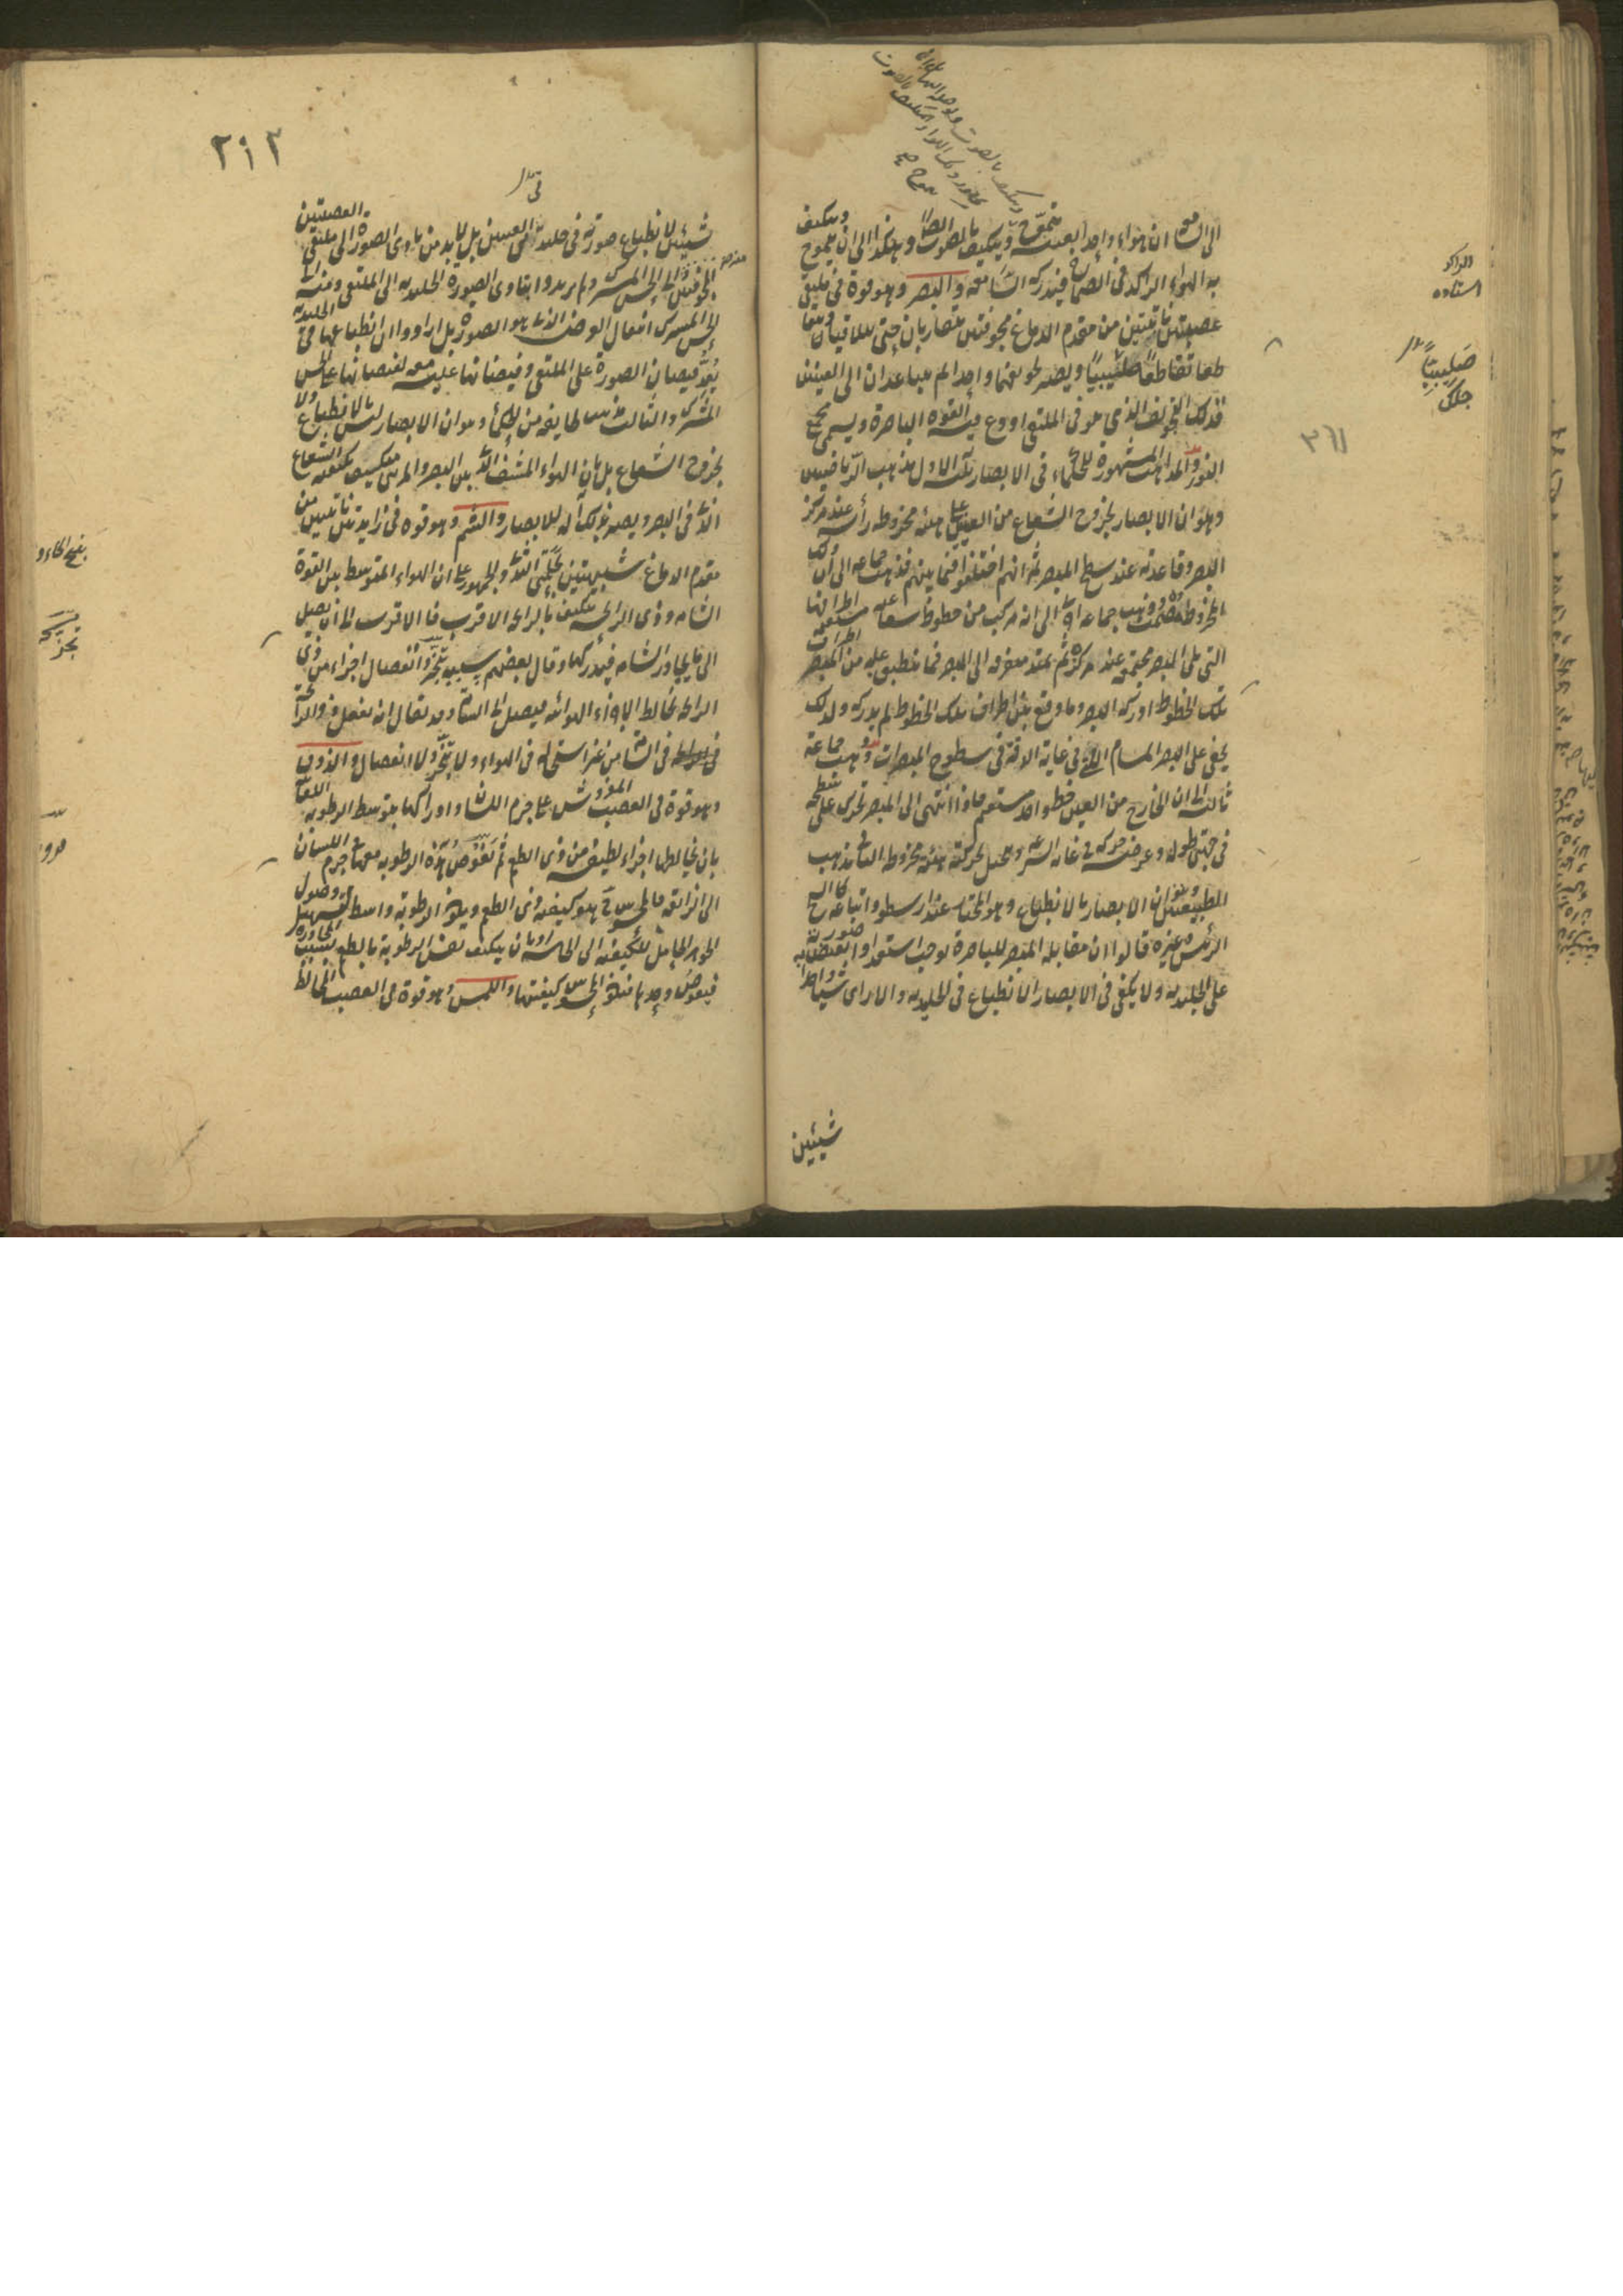 الى الصماخ ان هواء واحدا بعينه يتموج ويتكيف بالصوت
ويتكيف بالصوت ايضا وهكذا الى ان يتموج ويتكيف
به الهواء الراكد في الصماخ فيدركه السامعة والبصر وهو قوة في ملتقى
عصبتين نابتتين من مقدم الدماغ مجوفتين تتقاربان حتى تتلاقيان وتتقا
طعا تقاطعا صليبيا ويصير تجويفهما واحدا ثم يتباعدان الى العينين
فذلك التجويف الذي هو في الملتقى اودع فيه القوة الباصرة ويسمى مجمع
النور والمذاهب المشهورة للحكماء في الابصار ثلثة الاول مذهب الرياضيين
وهو ان الابصار بخروج الشعاع من العينين على هيئة مخروط رأسه عند مركز
البصر وقاعدته عند سطح المبصر ثم انهم اختلفوا فيما بينهم فذهب جماعة الى ان ذلك
المخروط مصمت وذهب جماعة اخرى الى انه مركب من خطوط شعاعية مستقيمة اطرافها
التي تلي البصر مجتمعة عند مركزه ثم تمتد متفرقة الى المبصر فما ينطبق عليه من المبصر اطراف
تلك الخطوط ادركه البصر وما وقع بين اطراف تلك الخطوط لم يدركه ولذلك
يخفى على البصر المسام التي في غاية الدقة في سطوح المبصرات وذهب جماعة
ثالثة الى ان الخارج من العين خط واحد مستقيم فاذا انتهى الى المبصر تحرك على سطحه
في جهتي طوله وعرضه حركة في غاية السرعة ويتخيل بحركته هيئة مخروط الثاني مذهب
الطبيعيين وهو ان الابصار بالانطباع وهو المختار عند ارسطو واتباعه كالشيخ
الرئيس وغيره قالوا ان مقابلة المبصر للباصرة توجب استعدادا تفيض به صورته
على الجليدية ولا يكفي في الابصار الانطباع في الجليدية والا لرأى شيئا واحدا
شيئين
الراكد
استاده
صليبيا
٣٦١
٢١٢
شيئين لانطباع صورته في جليديتي العينين بل لا بد من تأدي الصورة الى ملتقى العصبتين
المجوفتين ومنه الى الحس المشترك ولم يريدوا بتأدي الصورة الجليدية الى الملتقى ومنه الى
الحس المشترك انتقال العرض الذي هو الصورة بل ارادوا ان انطباعها في الجليدية
يعد فيضان الصورة على الملتقى وفيضانها عليه معد لفيضانها على الحس
المشترك والثالث مذهب طائفة من الحكماء وهو ان الابصار ليس بالانطباع ولا
بخروج الشعاع بل بان الهواء المشف الذي بين البصر والمرئي يتكيف بكيفية الشعاع
الذي في البصر ويصير بذلك آلة للابصار والشم وهو قوة في زايدتين نابتتين من
مقدم الدماغ شبيهتين بحلمتي الثدي والجمهور على ان الهواء المتوسط بين القوة
الشامة وذي الرائحة يتكيف بالرائحة الاقرب فالاقرب الى ان يصل
الى ما يجاور الشامة فيدركها وقال بعضهم سببه تبخر وانفصال اجزاء من ذي
الرائحة تخالط الاجزاء الهوائية فيصل الى الشامة وقد يقال انه يفعل ذو الرائحة
في الشامة من غير استحالة في الهواء ولا تبخر ولا انفصال والذوق
وهو قوة في العصب المفروش على جرم اللسان وادراكها بتوسط الرطوبة اللعابية
بان يخالطها اجزاء لطيفة من ذي الطعم ثم تغوص هذه الرطوبة معها في جرم اللسان
الى الذائقة فالمحسوس ح هو كيفية ذي الطعم ويكون الرطوبة واسطة لتسهيل وصول
الجوهر الحامل للكيفية الى الحاسة او بان يتكيف نفس الرطوبة بالطعم بسبب المجاورة
فيغوص وحدها فيكون المحسوس كيفيتها واللمس وهو قوة في العصب المخالط